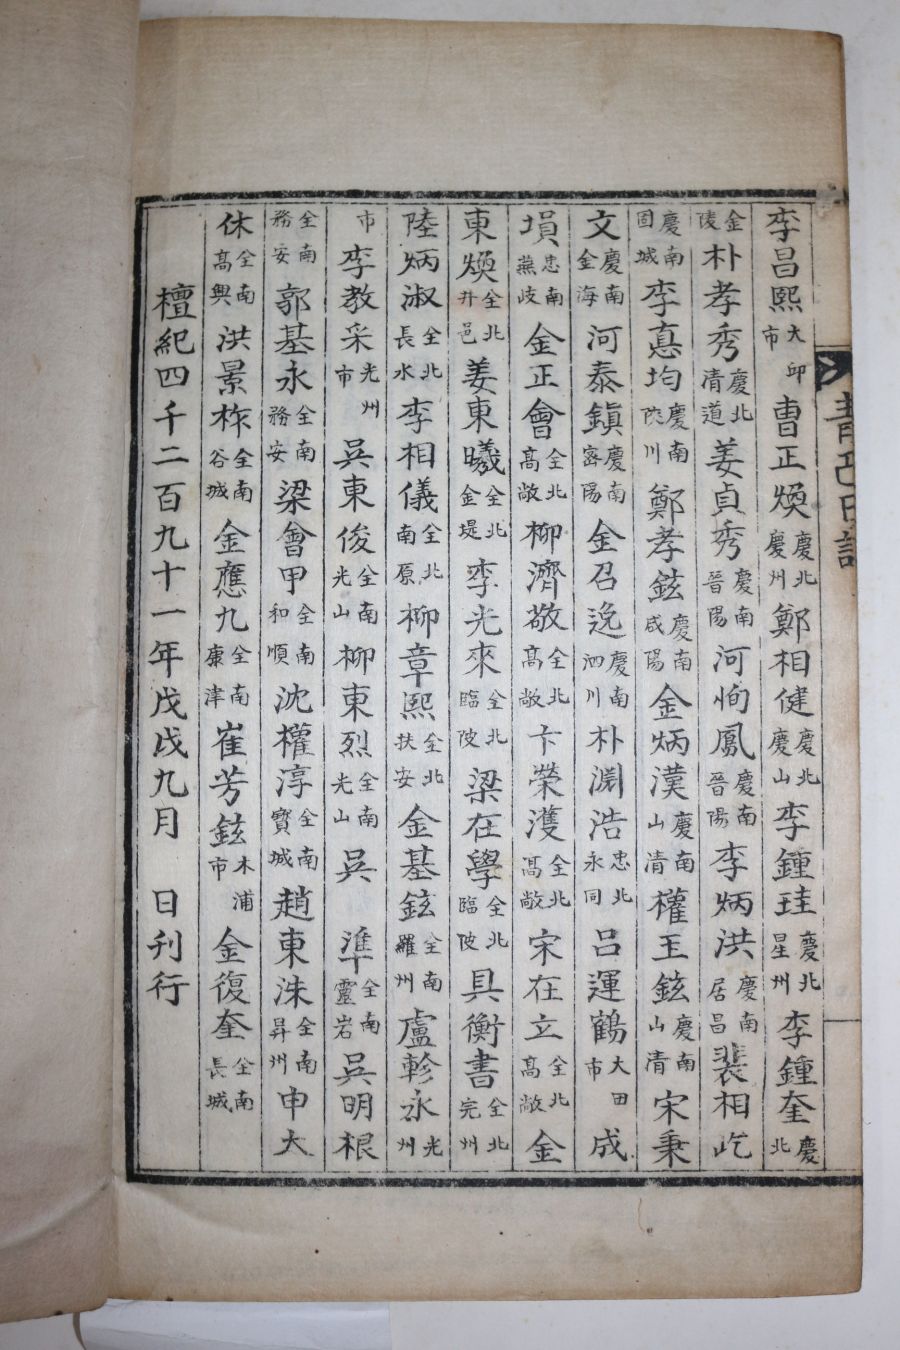 李昌熙大邱市 曺正煥慶北慶州 鄭相健慶北慶山 李鍾珪慶北星州 李鍾奎慶北
金陵 朴孝秀慶北清道 姜貞秀慶南晉陽 河恂鳳慶南晉陽 李炳洪慶南居昌 裵相屹
慶南固城 李憙均慶南陜川 鄭孝鉉慶南咸陽 金炳漢慶南山清 權玉鉉慶南山清 宋秉
文慶南金海 河泰鎭慶南密陽 金召逸慶南泗川 朴淵浩忠北永同 呂運鶴大田市 成
塤忠南燕岐 金正會全北高敞 柳濟敬全北高敞 卞榮濩全北高敞 宋在立全北高敞 金
東煥全北井邑 姜東曦全北金堤 李光來全北臨陂 梁在學全北臨陂 具衡書全北完州
陸炳淑全北長水 李相儀全北南原 柳章熙全北扶安 金基鉉全南羅州 盧軫永光州
市 李教采光州市 吳東俊全南光山 柳東烈全南光山 吳準全南靈岩 吳明根
全南務安 郭基永全南務安 梁會甲全南和順 沈權淳全南寶城 趙東洙全南昇州 申大
休全南高興 洪景柞全南谷城 金應九全南康津 崔芳鉉木浦市 金復奎全南長城
檀紀四千二百九十一年戊戌九月 日刊行